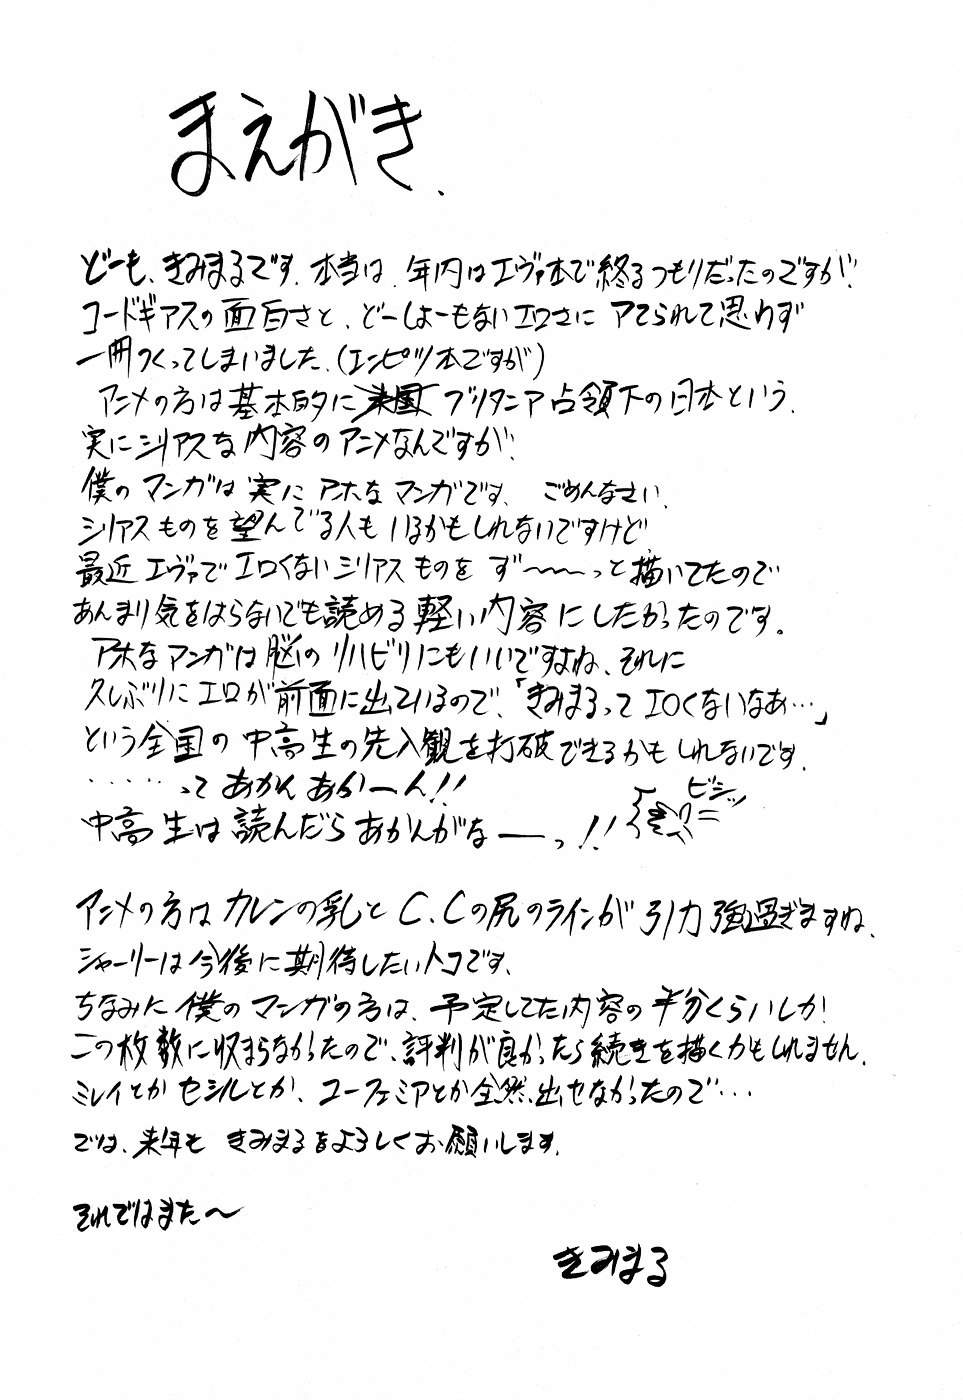 まえがき、
どーも、きみまるです。本当は、年内はエヴァ本で終るつもりだったのですが、
コードギアスの面白さと、どーしよーもないエロさに アてられて思わず
一冊つくってしまいました。(エンピツ本ですが)
アニメの方は基本的に米国ブリタニア占領下の日本という、
実にシリアスな内容のアニメなんですが、
僕のマンガは実にアホなマンガです、ごめんなさい、
シリアスものを望んでる人もいるかもしれないですけど
最近エヴァでエロくないシリアスものをず〜〜〜っと描いてたので
あんまり気をはらないでも読める軽い内容にしたかったのです。
アホなマンガは脳のリハビリにもいいですよね、それに
久しぶりにエロが前面に出ているので、「きみまるってエロくないなあ…」
という全国の中高生の先入観を打破できるかもしれないです、
・・・・・・って あかん あかーん!!
ビシッ
中高生は読んだらあかんがなーーっ!!
アニメの方はカレンの乳とC.Cの尻のラインが引力強過ぎますね、
シャーリーは今後に期待したいトコです、
ちなみに僕のマンガの方は、予定してた内容の半分くらいしか
この枚数に収まらなかったので、評判が良かったら続きを描くかもしれません、
ミレイとかセシルとか、ユーフェミアとか全然出せなかったので…
では、来年も きみまるをよろしくお願いします、
それではまた〜
きみまる